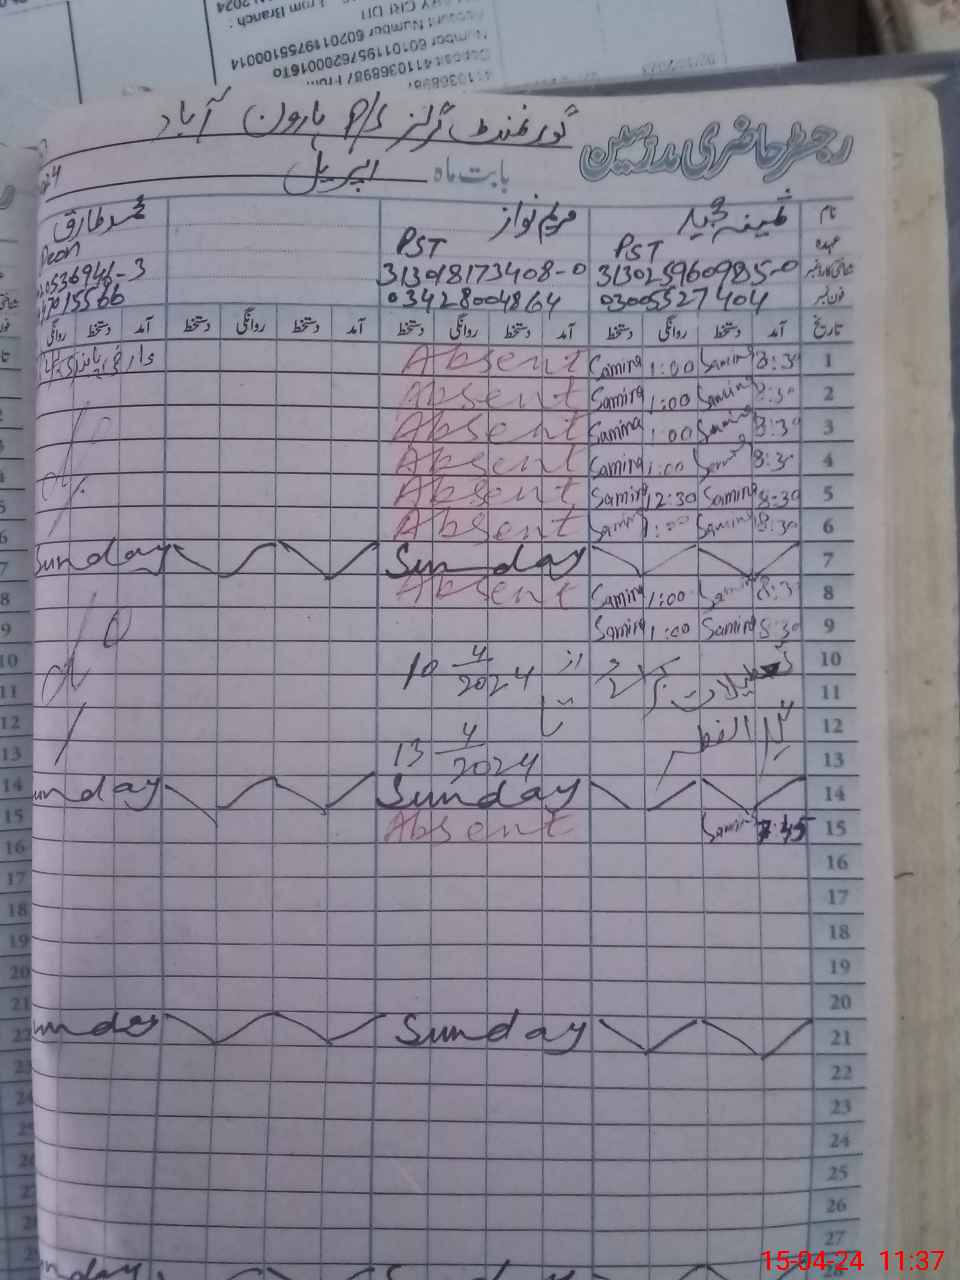 4110368987
Deposit 4110368987 From
Number 6010119576200016To
Account Number 6020119755100014
From Branch :
گورنمنٹ گرلز P/S ہارون آباد
رجسٹر حاضری مدرسین
بابت ماہ اپریل
نام مریم نواز محمد طارق
عہدہ PST PST Peon
31302596098 5-0 313018173408-0
فون نمبر 03005527404 03428004864
تاریخ آمد دستخط روانگی دستخط آمد دستخط آمد دستخط روانگی دستخط آمد دستخط روانگی
1 8:30 Samina 1:00 Samina Absent
2 8:30 Samina 1:00 Samina Absent
3 8:30 Samina 1:00 Samina Absent
4 8:30 Samina 1:00 Samina Absent
5 8:30 Samina 12:30 Samina Absent
6 8:30 Samina 1:00 Samina Absent
7 Sunday Sunday
8 8:30 Samina 1:00 Samina Absent
9 8:30 Samina 1:00 Samina
10 تعطیلات برائے از 10 4/2024
11 تا
12 عید الفطر 13 4/2024
13
14 Sunday Sunday
15 7:45 Samina Absent
16
17
18
19
20
21 Sunday Sunday
22
23
24
25
26
27
28
15-04-24 11:37